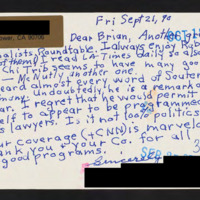 Fri Sept 21, 90
ower, CA 90706
Dear Brian, Another
alists Roundtable. I always enjoy
of them) I read LA Times daily so also
Chi Trib seems to have many goo
He. Nutly, another one.
eard almost every word of Souter
mony. Undoubtedly, he is a remarka
ar. I regret that he would permit
elf to appear to be programmed
s lawyers. Is it not 100% politics
ur coverage (+CNN) is marvelo
ank you + your Co. for all
good programs.
Sincerely
SEP